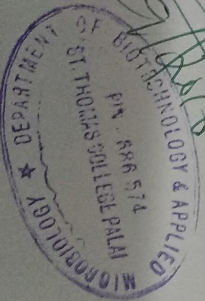 DEPARTMENT OF BIOTECHNOLOGY & APPLIED MICROBIOLOGY ★
ST. THOMAS COLLEGE PALAI
PIN - 686 574